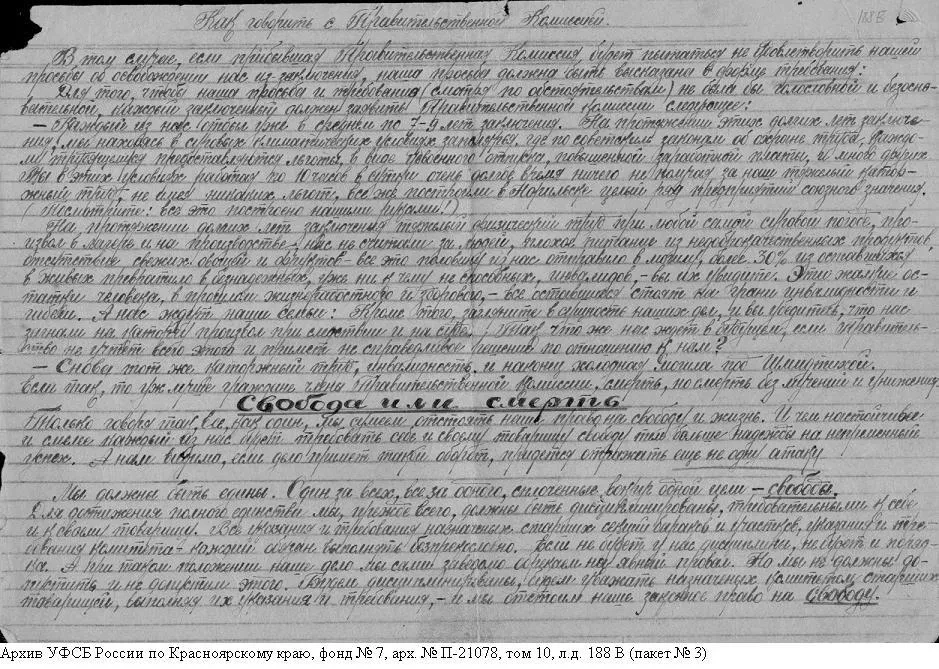 Как говорить с Правительственной Комиссией.
188 В
В том случае, если прибывшая Правительственная Комиссия будет пытаться не удовлетворить нашей
просьбы об освобождении нас из заключения, наша просьба должна быть высказана в форме требования:
Для того, чтобы наша просьба и требования (смотря по обстоятельствам) не была бы голословной и безосно-
вательной, каждый заключенный должен заявить Правительственной комиссии следующее:
— Каждый из нас отбыл уже в среднем по 7-9 лет заключения. На протяжении этих долгих лет заключе-
ния, мы находясь в суровых климатических условиях заполярья, где по советским законам об охране труда, каждо-
му трудящемуся предоставляются льготы, в виде отпуска, повышенной заработной платы, и много других
Мы в этих условиях работая по 10 часов в сутки очень долгое время ничего не получая за наш тяжелый катор-
жный труд, не имея никаких льгот, все же построили в Норильске целый ряд предприятий союзного значения.
(Посмотрите: все это построено нашими руками!)
На протяжении долгих лет заключения тяжелый физический труд при любой самой суровой погоде, про-
извол в лагере и на производстве, нас не считали за людей, плохое питание из недоброкачественных продуктов,
отсутствие свежих овощей и фруктов - все это половину из нас отправило в могилу, более 30% из оставшихся
в живых превратило в безнадежных, уже ни к чему не способных, инвалидов, - вы их увидите. Эти жалкие ос-
татки человека, в прошлом жизнерадостного и здорового, - все оставшиеся стоят на грани инвалидности и
гибели. А нас ждут наши семьи. Кроме этого, загляните в сущность наших дел, и вы убедитесь, что нас
загнали на каторгу произвол при следствии и на суде. Так что же нас ждет в будущем, если Правитель-
ство не учтет всего этого и примет не справедливое решение по отношению к нам?
— Снова тот же каторжный труд, инвалидность и наконец холодная могила под Шмидтихой.
Если так, то уж лучше граждане члены Правительственной комиссии, смерть, но смерть без мучений и унижения.
Свобода или смерть
Только говоря так, все, как один, мы сумеем отстоять наше право на свободу и жизнь. И чем настойчивее
и смелее каждый из нас будет требовать себе и своему товарищу свободу тем больше надежды на непременный
успех. А нам видимо, если дело примет такой оборот, придется отражать еще не одну атаку!
Мы должны быть едины. Один за всех, все за одного, сплоченные вокруг одной цели - свободы.
Для достижения полного единства мы, прежде всего, должны быть дисциплинированы, требовательными к себе
и к своему товарищу. Все указания и требования назначенных старших секций бараков и участков, указания и тре-
бования комитета - каждый обязан выполнять безпрекословно. Если не будет у нас дисциплины, не будет и поряд-
ка. А при таком положении наше дело мы сами заведомо обрекаем на явный провал. Но мы не должны до-
пустить и не допустим этого. Будем дисциплинированы, будем уважать назначеных комитетом старших
товарищей, выполняя их указания и требования, - и мы отстоим наше законное право на свободу.
Архив УФСБ России по Красноярскому краю, фонд № 7, арх. № П-21078, том 10, л.д. 188 В (пакет № 3)